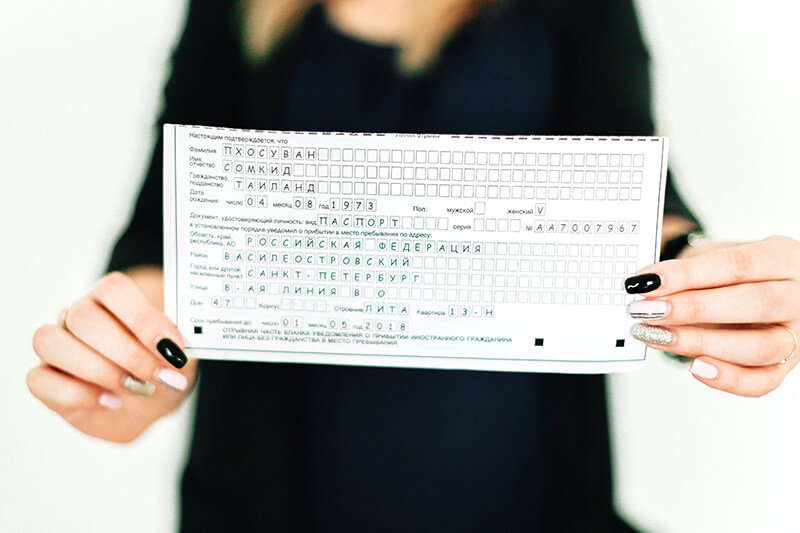 Настоящим подтверждается, что
Фамилия ПХОСУВАН
Имя, отчество СОМКИД
Гражданство, подданство ТАИЛАНД
Дата рождения: число 04 месяц 08 год 1973 Пол: мужской женский V
Документ, удостоверяющий личность: вид ПАСПОРТ серия № АА7007967
в установленном порядке уведомил о прибытии в место пребывания по адресу:
Область, край, республика, АО РОССИЙСКАЯ ФЕДЕРАЦИЯ
Район ВАСИЛЕОСТРОВСКИЙ
Город или другой населенный пункт САНКТ-ПЕТЕРБУРГ
Улица 8-АЯ ЛИНИЯ В О
Дом 47 Корпус Строение ЛИТА Квартира 13-Н
Срок пребывания до: число 01 месяц 05 год 2018
ОТРЫВНАЯ ЧАСТЬ БЛАНКА УВЕДОМЛЕНИЯ О ПРИБЫТИИ ИНОСТРАННОГО ГРАЖДАНИНА
ИЛИ ЛИЦА БЕЗ ГРАЖДАНСТВА В МЕСТО ПРЕБЫВАНИЯ